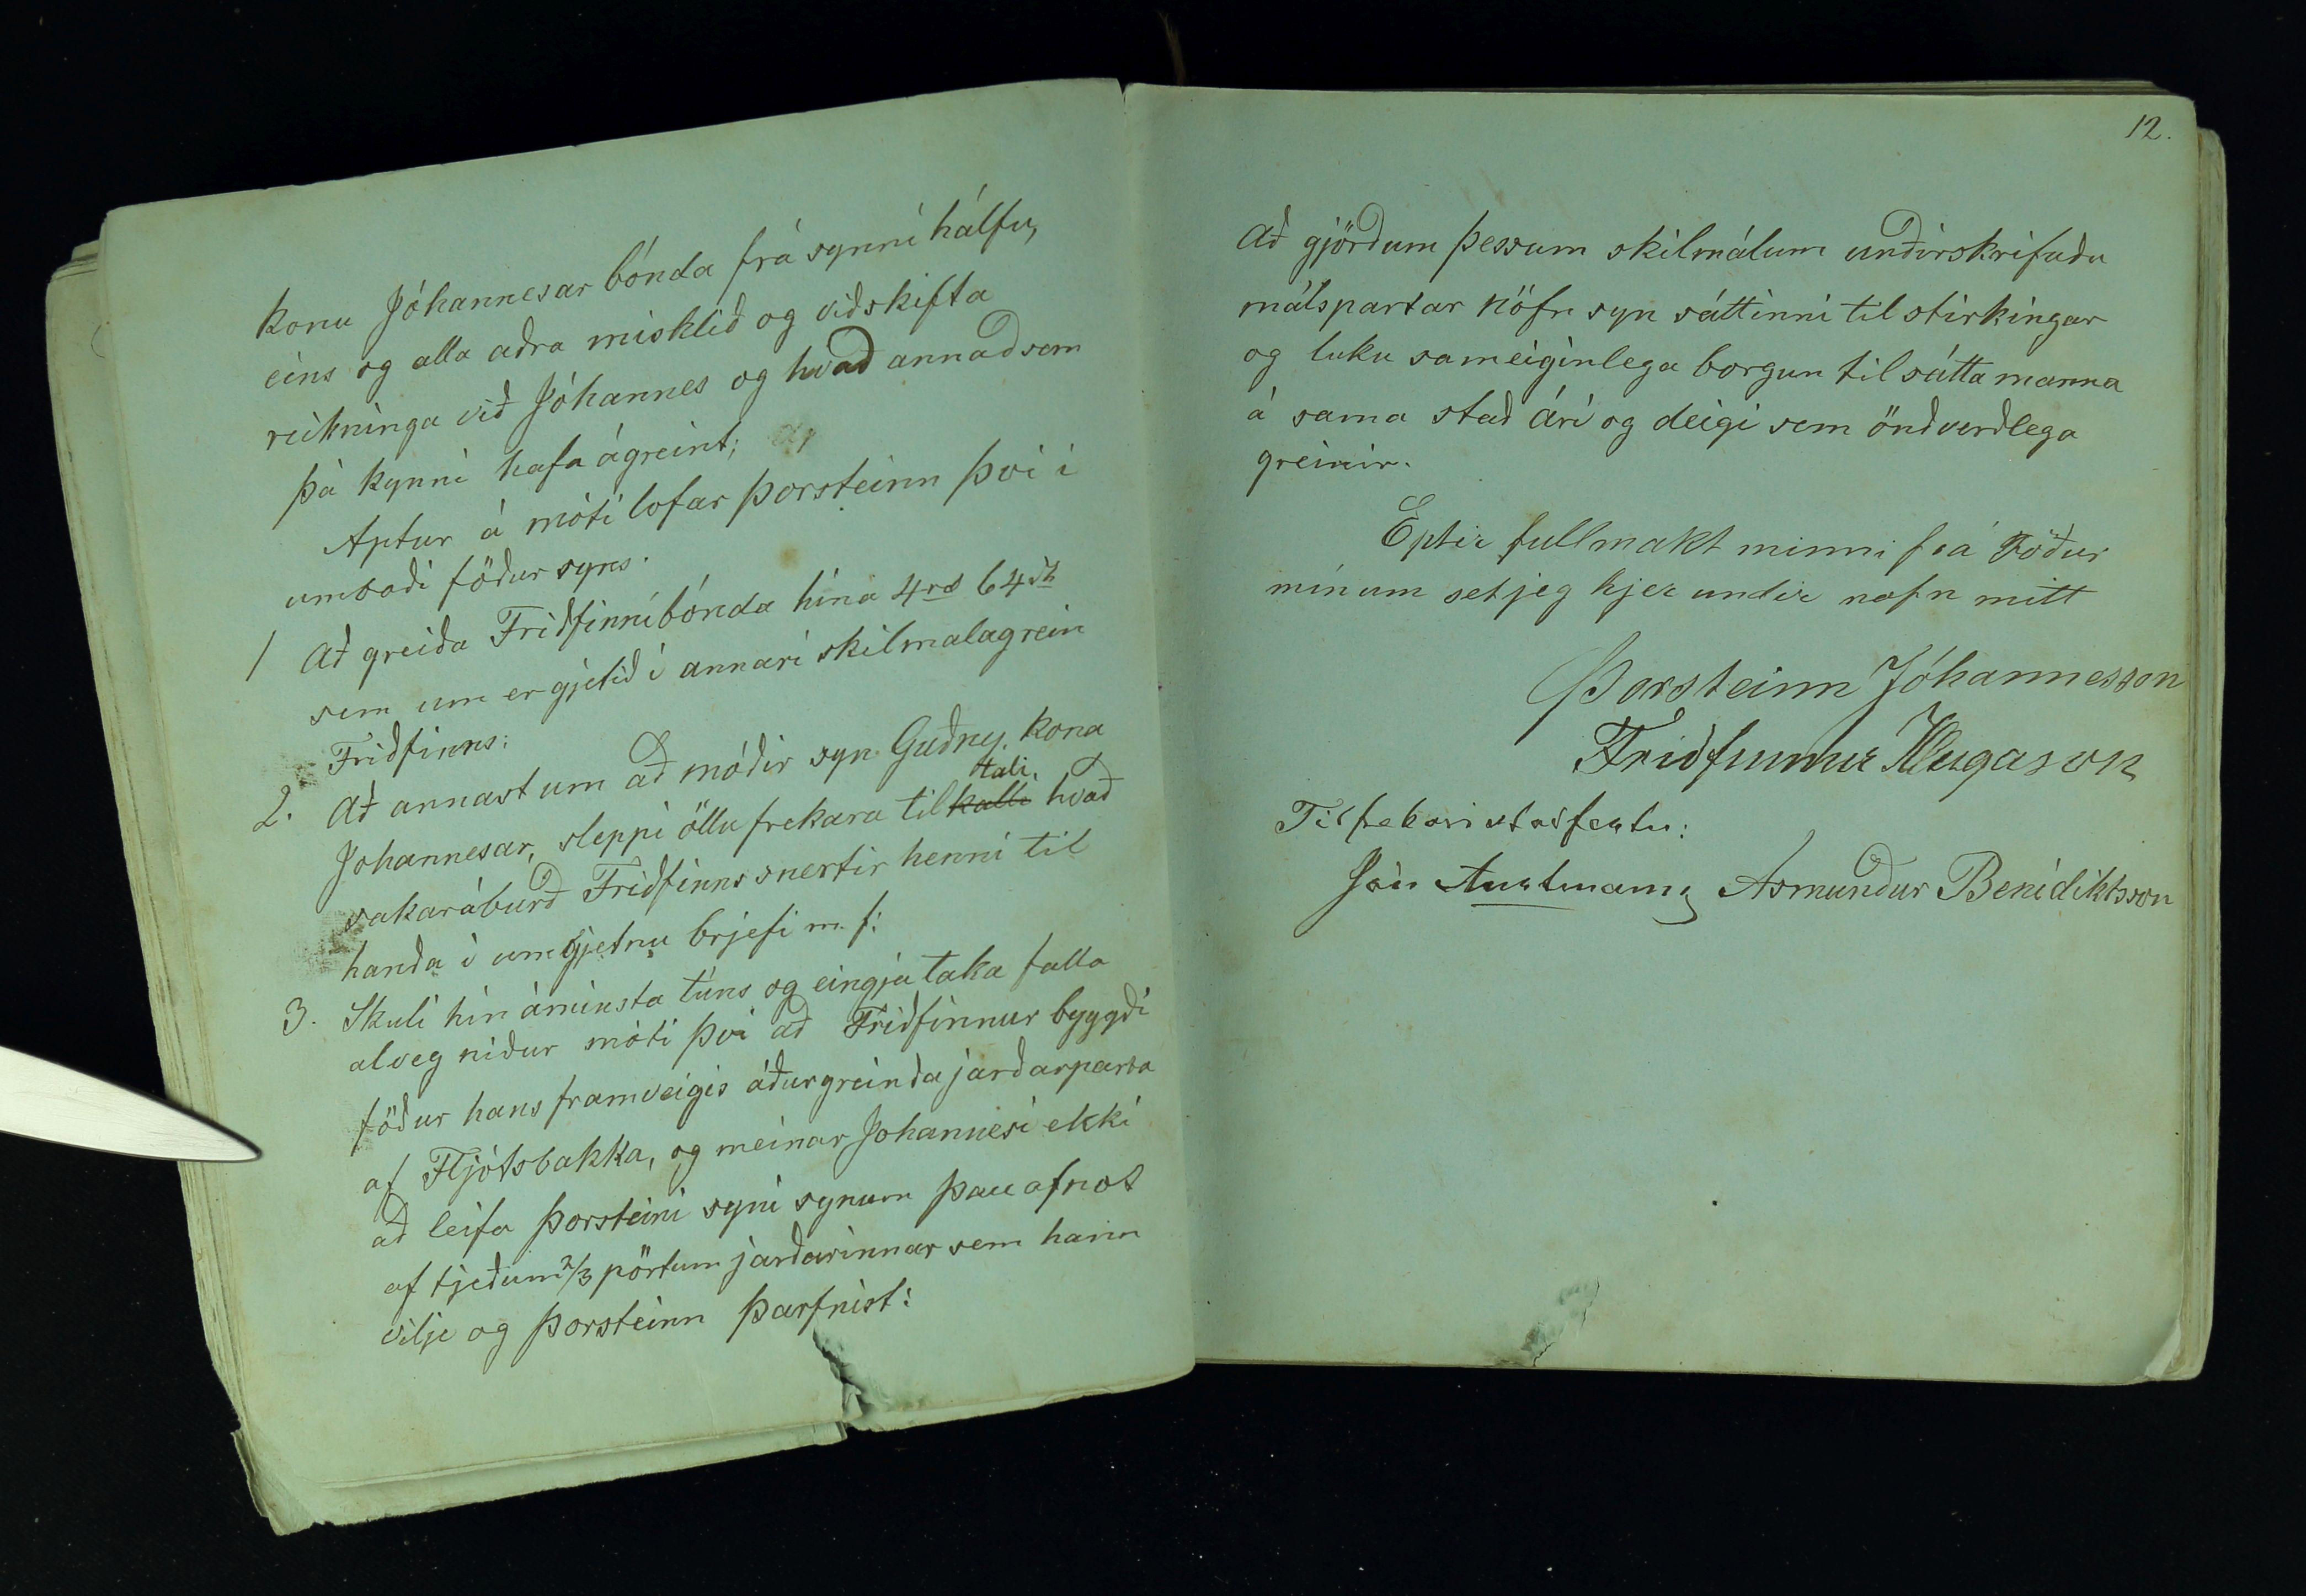 konu Jóhannesar bónda frá synni hálfu,
eins og alla aðra misklið og viðskifta
reikninga við Jóhannes og hvað annað sem
þá kynni hafa ágreint;
Aptur á móti lofar Þorsteinn því í
umboði föður syns.
1 Að greiða Friðfinni bónda hina 4rd 64sk
sem um er gjetið í annari skilmalagrein
Friðfinns:
2. Að annast um að móðir syn Guðny, kona
Johannesar, sleppi öllu frekara til kalli tali, hvað
sakaráburð Friðfinns snertir henni til
handa í umgjetnu brjefi m. f:
3. Skuli hin áminsta túns og eingja taka falla
alveg niður móti því að Friðfinnur byggði
föður hans framveigis áðurgreinda jarðarparta
af Fljótsbakka, og meinar Johannesi ekki
að leifa Þorsteini syni synum þau afnot
af tjeðum 2/3 pörtum jarðarinnar sem hann
vilje og Þorsteinn þarfnist:
12.
Að gjörðum þessum skilmálum undirskrifuðu
málspartar nöfn syn sáttinni til stirkingar
og luku sameiginlega borgun til sátta manna
á sama stað ári og deigi sem öndverðlega
greinir.
Eptir fullmakt minni frá Föður
mínum set jeg hjer undir nafn mitt
Þorsteinn Jóhannesson
Friðfinnur Illugason
Jón Austmann, Asmundur Benidiktsson